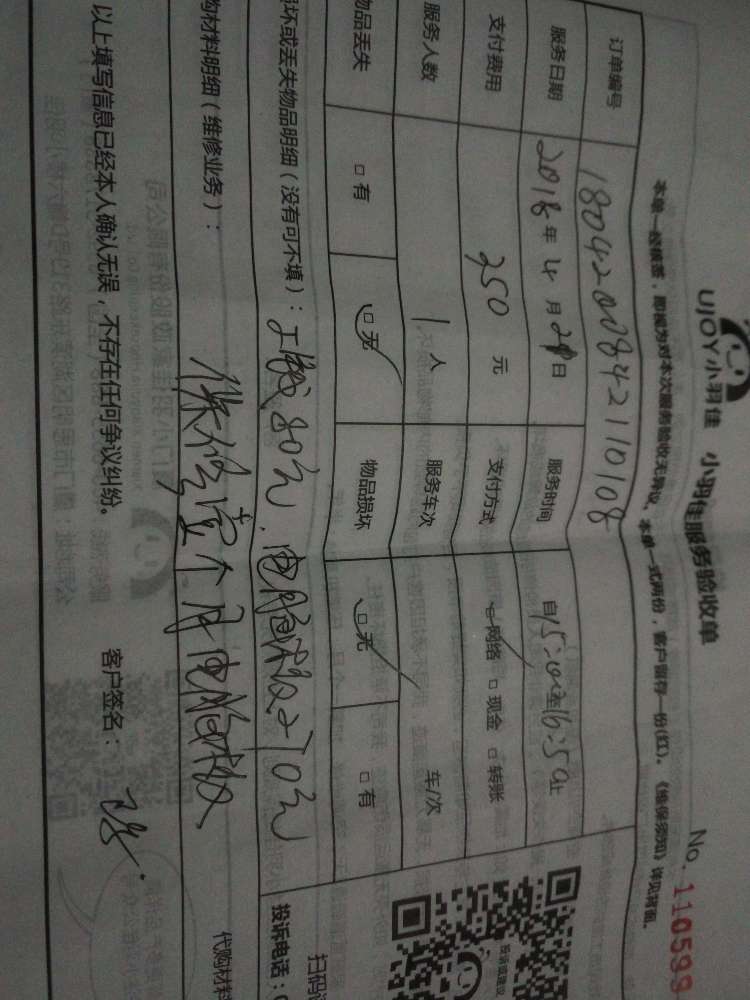 UJOY小羽佳 小羽佳服务验收单
No. 110599
本单一经接签，即视为对本次服务验收无异议。本单一式两份，客户留存一份(红)。《维保须知》详见背面。
订单编号 1804200842110108
服务日期 2018年4月21日 服务时间 自15:00至16:50止
支付费用 350元 支付方式 网络 □现金 □转账
服务人数 1人 服务车次 车/次
物品丢失 □有 □无 物品损坏 □无 □有
损坏或丢失物品明细（没有可不填）： 工钱80元，电脑板270元
购材料明细（维修业务）： 保修壹个月电脑板
代购材料
以上填写信息已经本人确认无误，不存在任何争议纠纷。 客户签名：
投诉或建议
扫码
投诉电话：